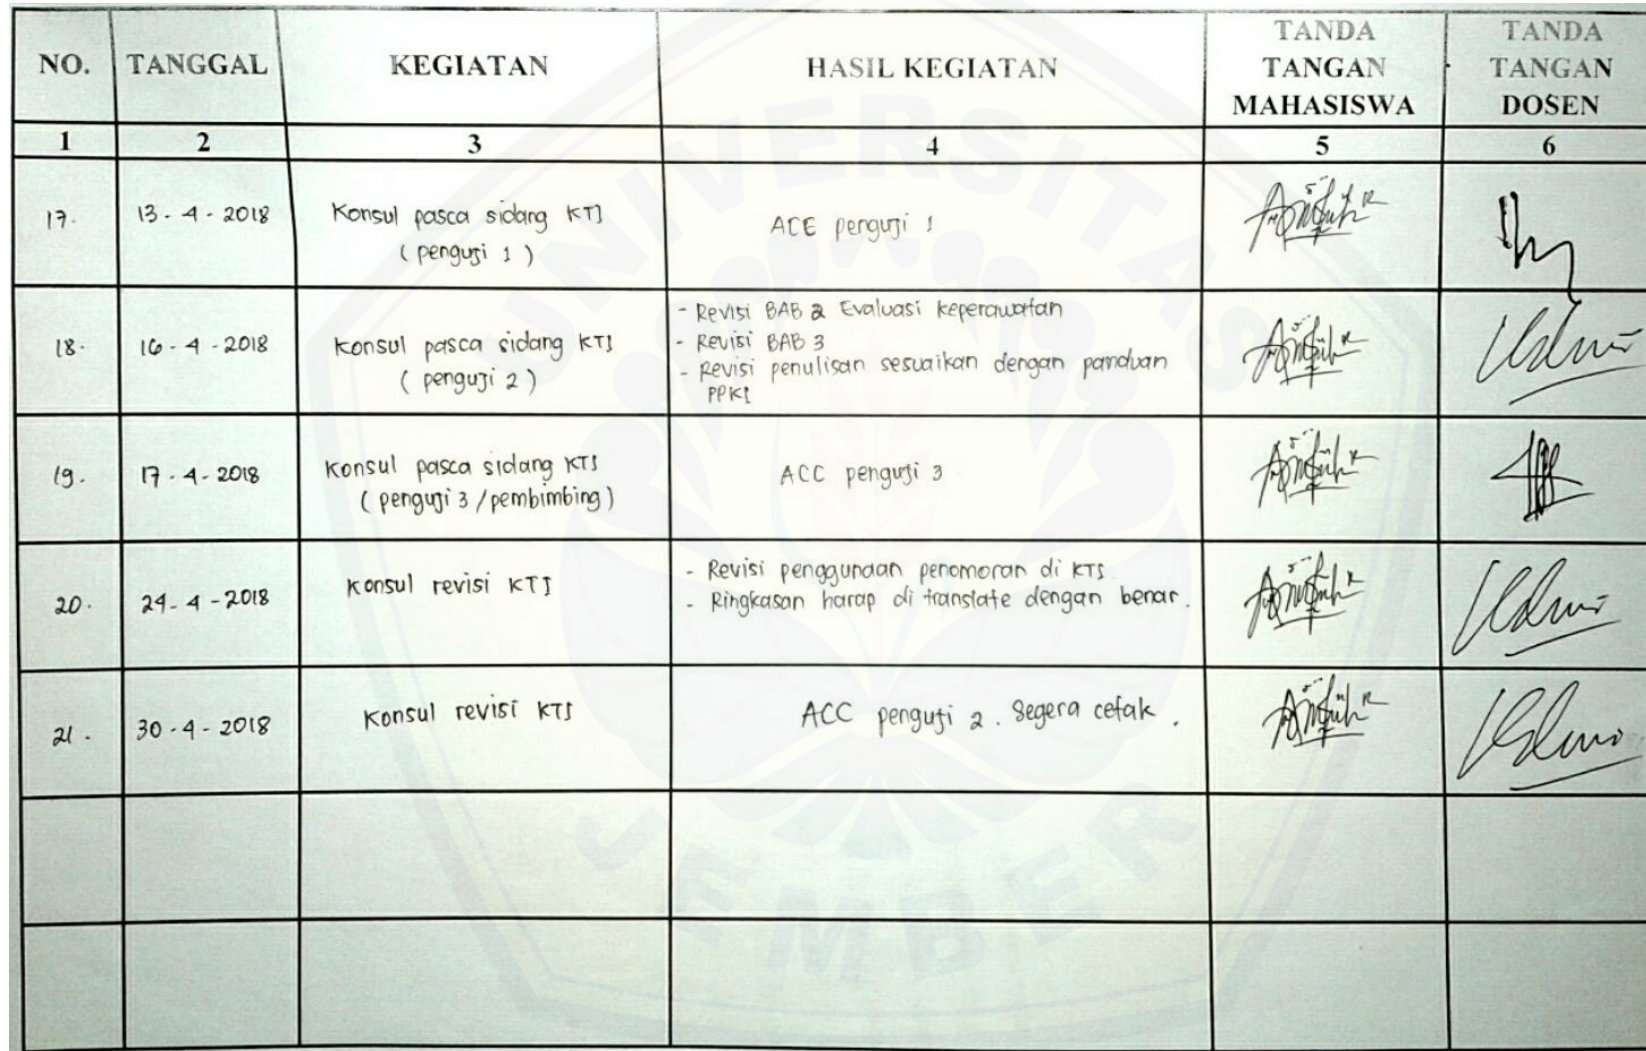 NO.
TANGGAL
KEGIATAN
HASIL KEGIATAN
TANDA
TANGAN
MAHASISWA
TANDA
TANGAN
DOSEN
1 2 3 4 5 6
17. 13-4-2018
Konsul pasca sidang KTI
(penguji 1)
ACC penguji 1
18. 16-4-2018
Konsul pasca sidang KTI
(penguji 2)
- Revisi BAB 2 Evaluasi keperawatan
- Revisi BAB 3
- Revisi penulisan sesuaikan dengan panduan
PPKI
19. 17-4-2018
Konsul pasca sidang KTI
(penguji 3/pembimbing)
ACC penguji 3
20. 24-4-2018
Konsul revisi KTI
- Revisi penggunaan penomoran di KTI.
- Ringkasan harap di translate dengan benar.
21. 30-4-2018
Konsul revisi KTI
ACC penguji 2. Segera cetak.
UNIVERSITAS
JEMBER